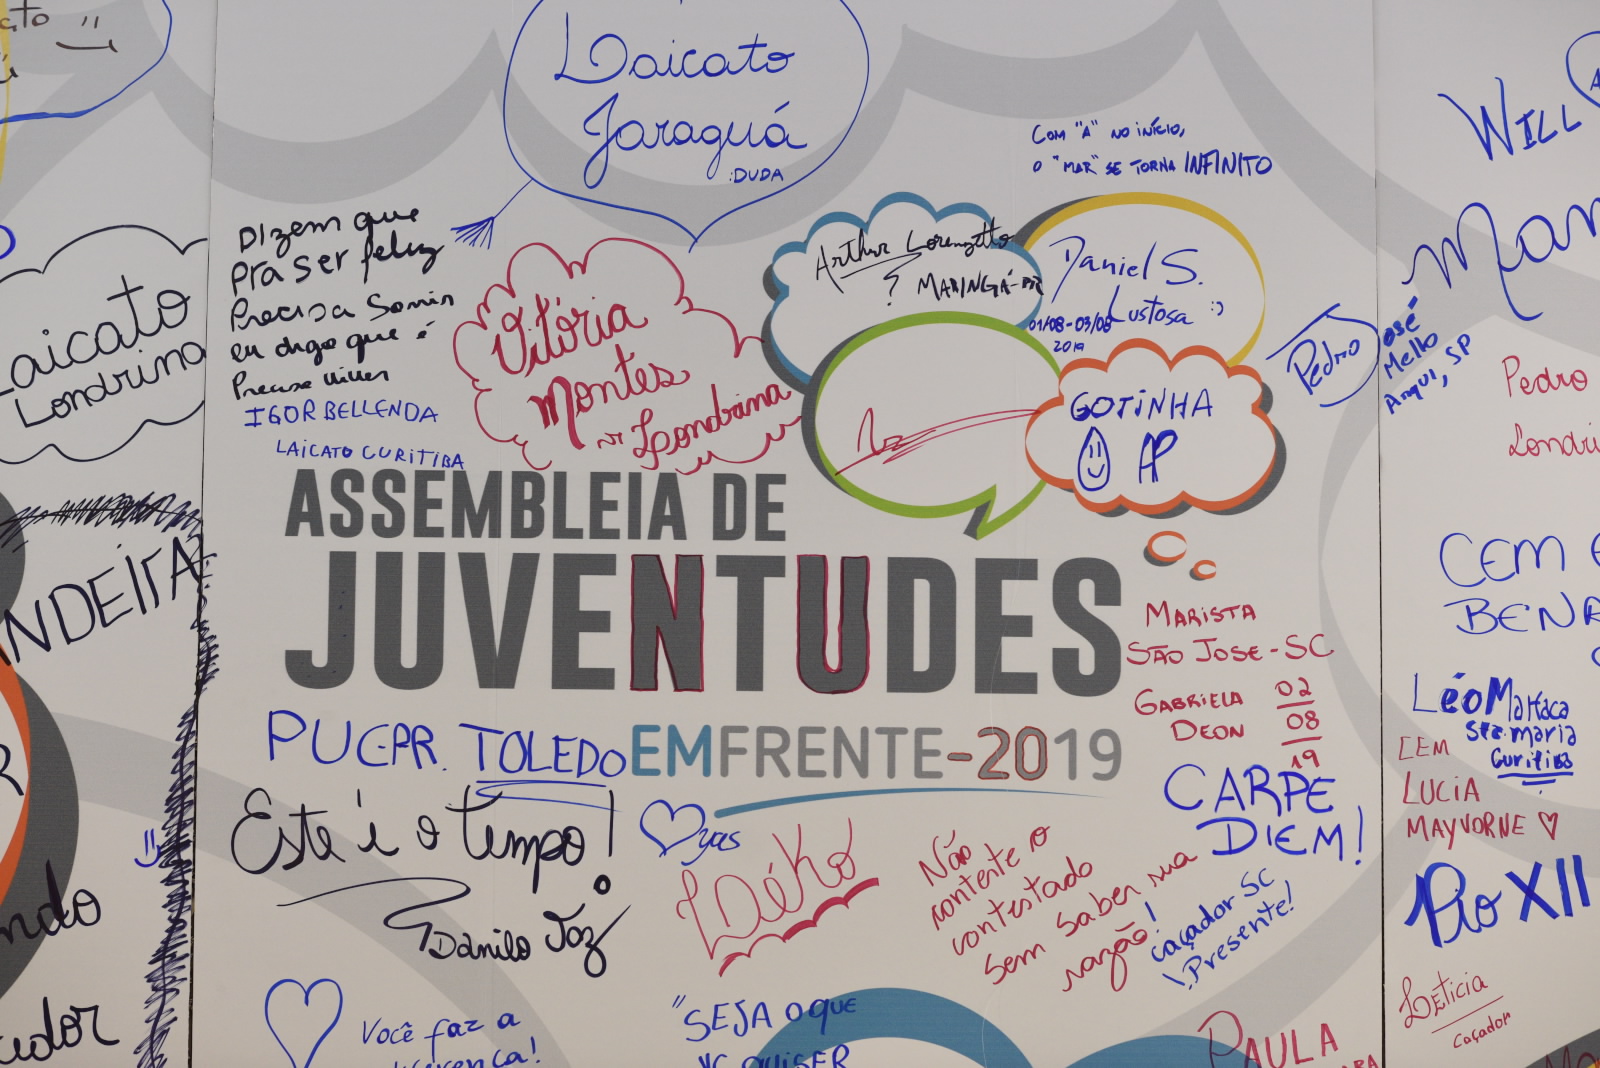 Laicato
Jaraguá
:DUDA
COM "A" NO INÍCIO,
O "MAR" SE TORNA INFINITO
WILL
Dizem que
pra ser feliz
Precisa Sorrir
eu digo que é
Precisa Viver
IGOR BELLENDA
LAICATO CURITIBA
Vitória
Montes
Londrina
Arthur Lorenzetto
MARINGÁ-PR
Daniel S.
Lustosa :)
01/08-03/08
2019
GOTINHA
AP
Pedro
José
Mello
SP
Pedro
Laicato
Londrina
ASSEMBLEIA DE
JUVENTUDES
EMFRENTE-2019
PUCPR. TOLEDO
Este é o tempo!
Danilo
yas
LDéKo
Não
contente o
contestado
sem saber sua
razão!
MARISTA
SÃO JOSE-SC
GABRIELA
DEON
02
08
19
CARPE
DIEM!
Caçador SC
Presente!
CEM
Léo Mattaca
Sta maria
Curitiba
CEM
LUCIA
MAYVORNE
Pio XII
LETICIA
caçador
Você faz a
"SEJA O QUE
VC QUISER
PAULA